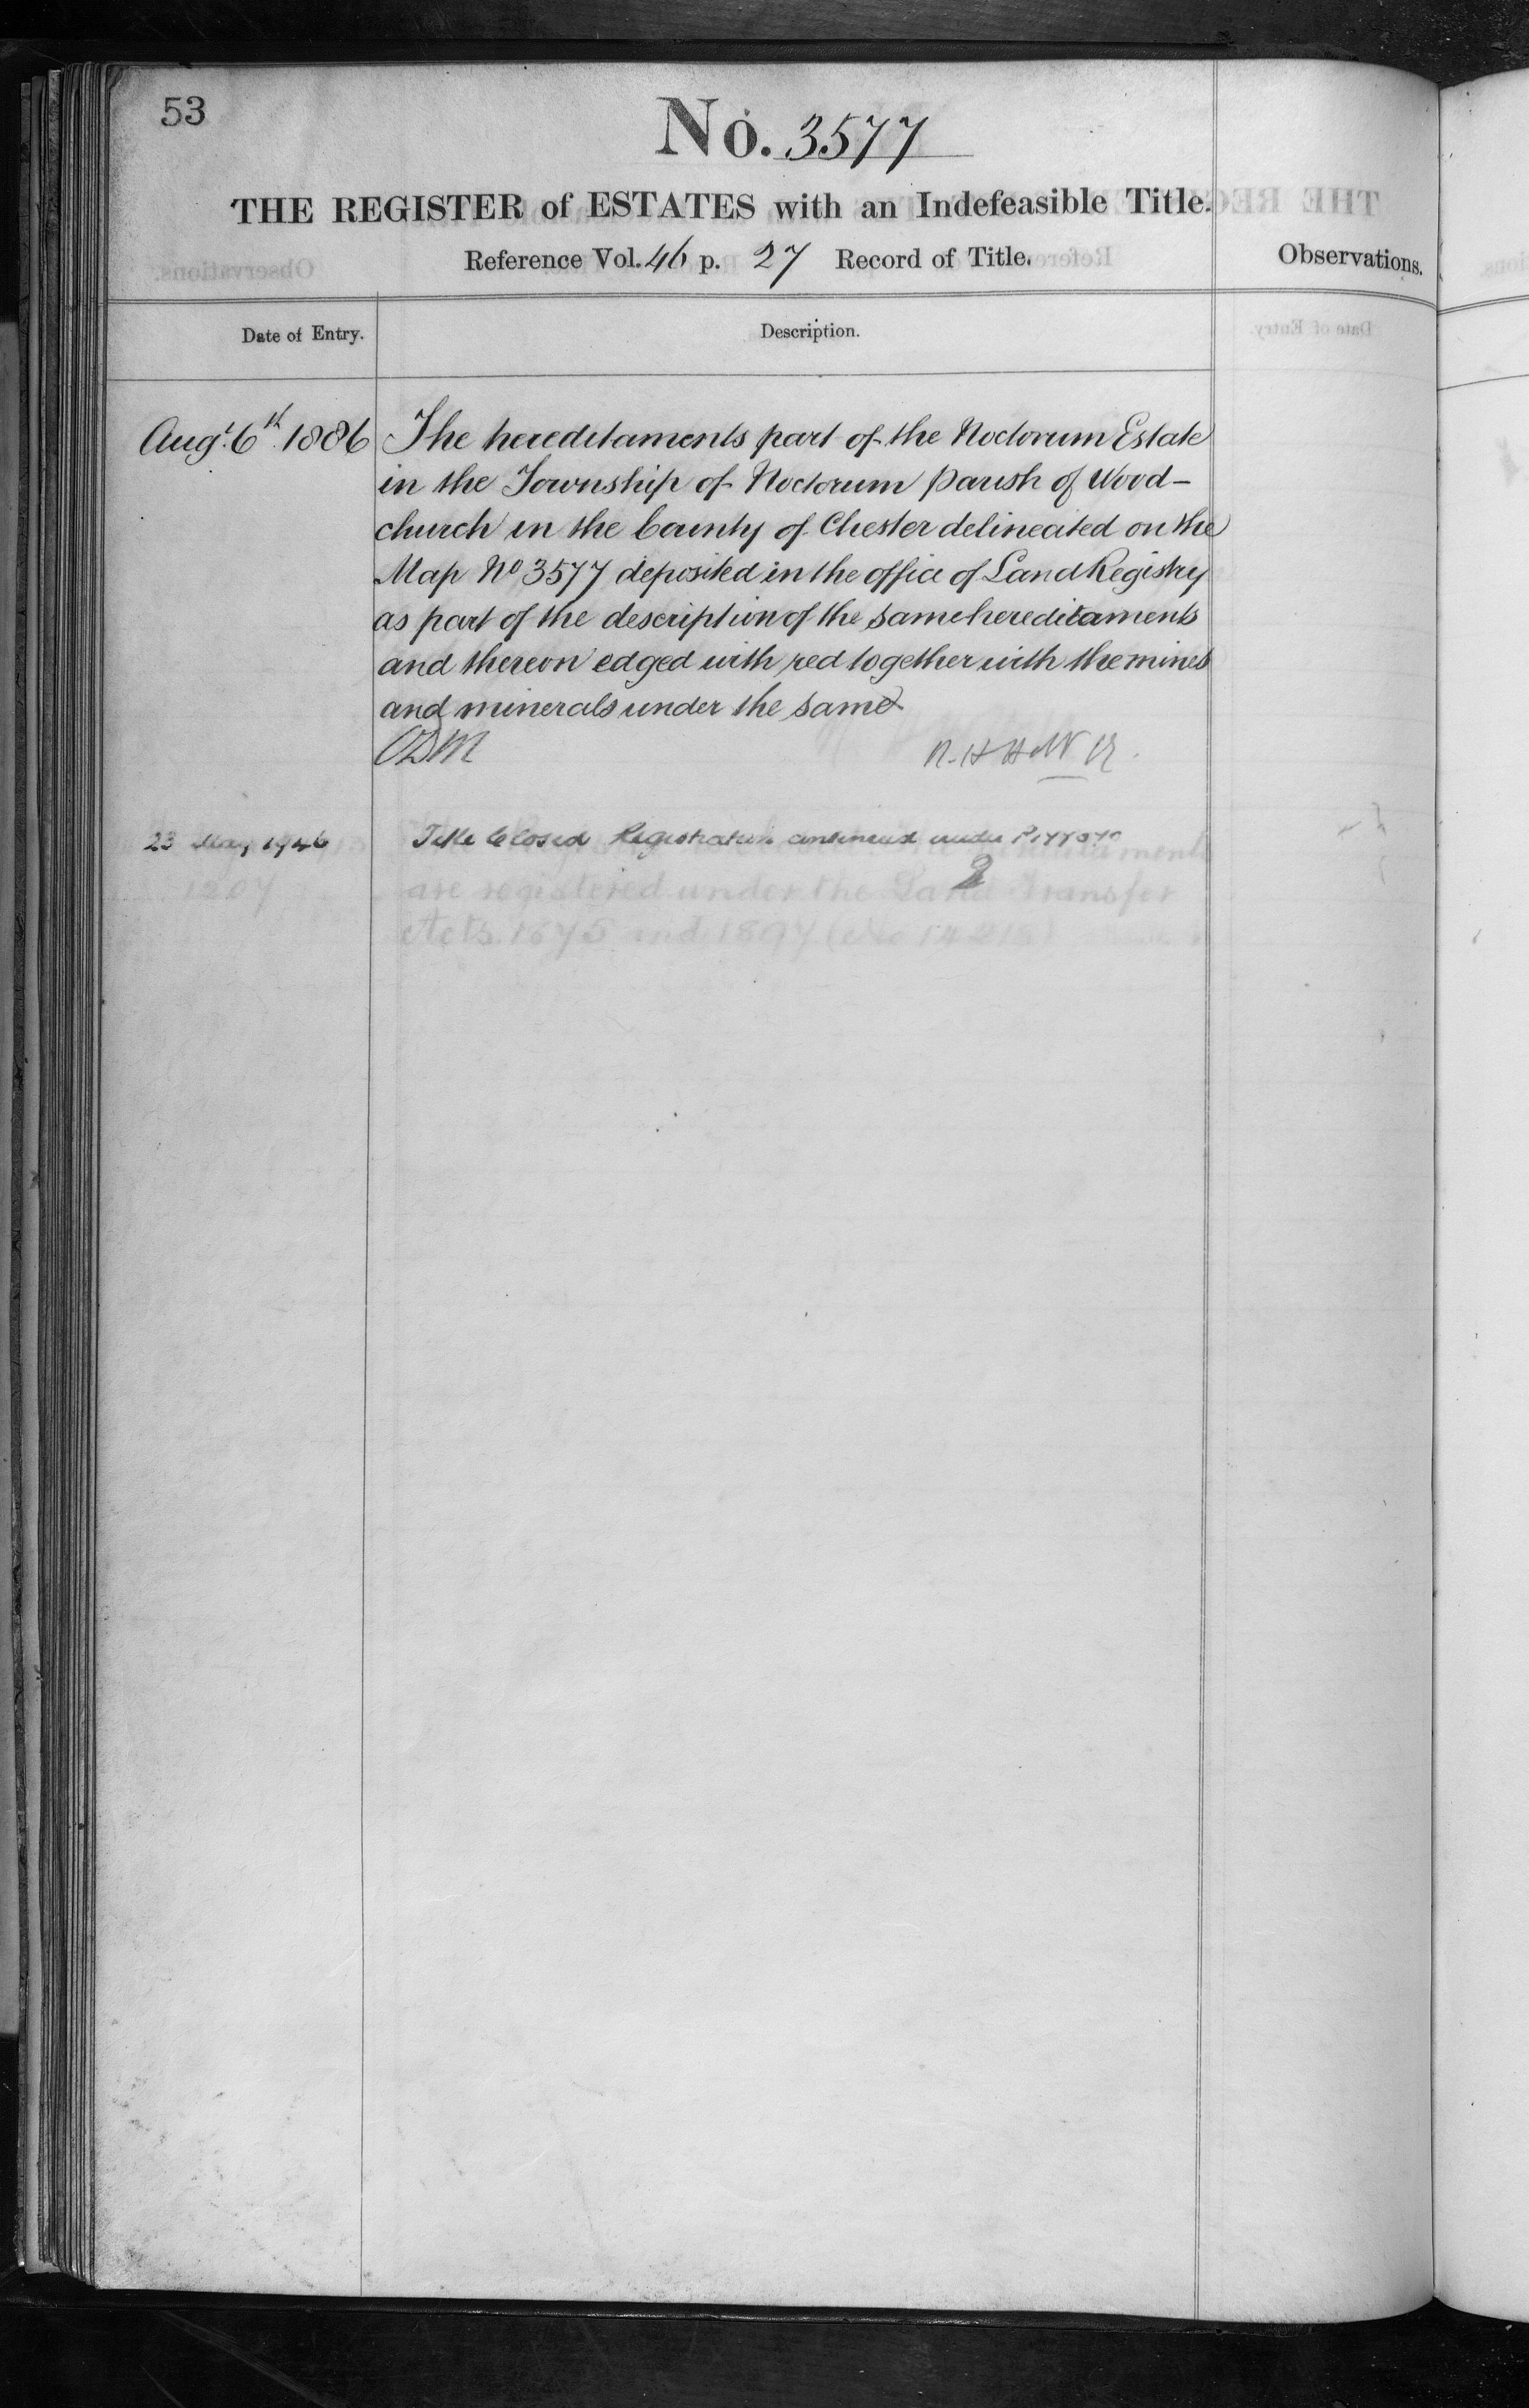 53
No. 3577
THE REGISTER of ESTATES with an Indefeasible Title.
Reference Vol. 46 p. 27 Record of Title.
Observations.
Date of Entry.
Description.
Augt. 6th. 1886
The hereditaments part of the Noctorum Estate
in the Township of Noctorum Parish of Wood-
church in the County of Chester delineated on the
Map No 3577 deposited in the office of Land Registry
as part of the description of the same hereditaments
and thereon edged with red together with the mines
and minerals under the same
23 May 1946
Title Closed Registration continued under
are registered under the Land Transfer
Acts 1875 and 1897